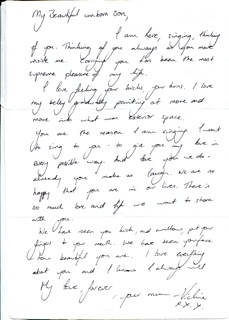 My Beautiful unborn son,
I am here, singing, thinking
of you. Thinking of you always as you move
inside me. Carrying you has been the most
supreme pleasure of my life.
I love feeling your kicks, your turns. I love
my belly gradually pointing at more and
more into what was exterior space.
You are the reason I am singing. I want
to sing to you - to give you my love in
every possible way. And love you we do -
already you make us laugh. We are so
happy that you are in our lives. There is
so much love and life we want to share
with you.
We have seen you kick, and swallow, put your
fingers to your mouth. We have seen your face.
How beautiful you are. I love everything
about you and I know I always will
My love forever
, your mum -
x.x.x